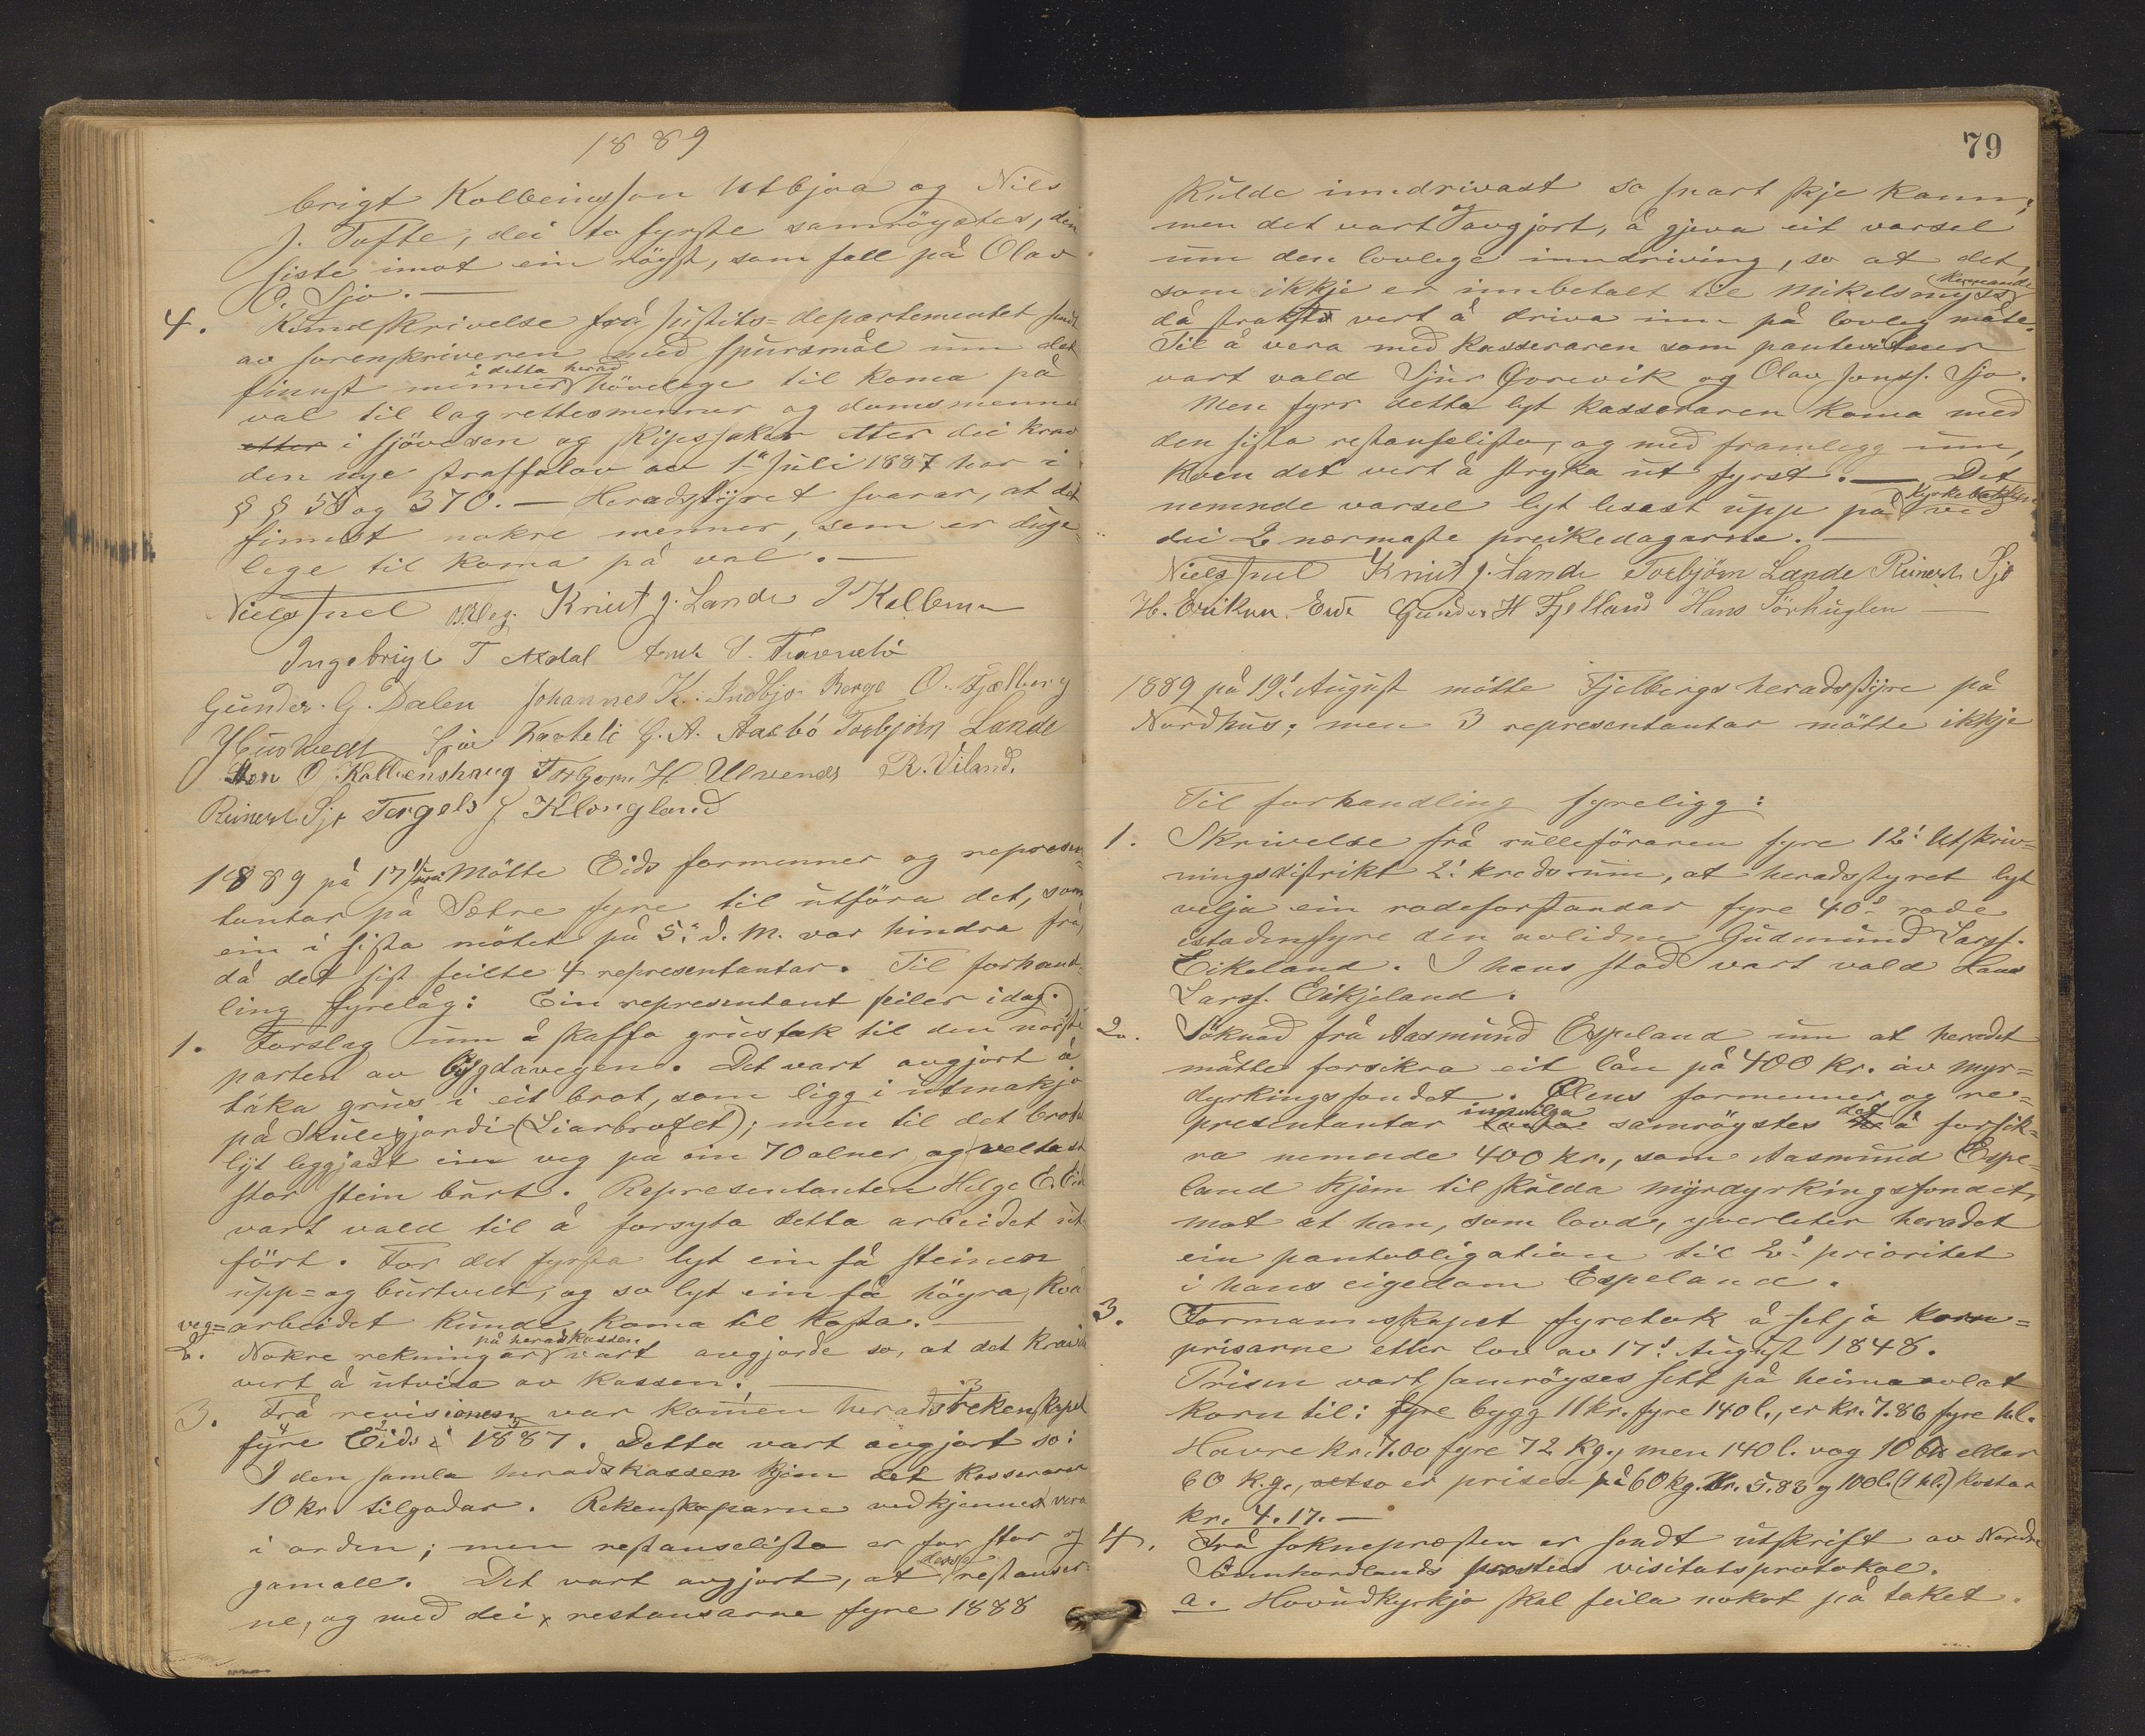 1889
brigt Kolbeinsson Utbjoa og Nils
J. Tufte, dei to fyrste samröystes, den
siste imot ein röyst, som fall på Olav
O. Sjo. —
4. Rundskrivelse frå justits-departementet sendt
av sorenskriveren med spursmål um det
finnst menner i detta herad hövelege til koma på
val til lagrettesmenner og domsmenner
etter i sjövesen og skipssaker etter dei krav
den nye straffelov av 1ª Juli 1887 har i
§ § 58 og 370. — Heradstyret svarar, at det
finnst nokre menner, som er duge-
lege til koma på val. —
Niels Juel Knut J. Lande
Ingebrigt T Axdal
Gunder. G. Dalen Johannes K. Indbjo Børge O. Fjælberg
Sjur Kaateli G. A. Aasbö Torbjörn Lande
O. Kalbenshaug Torbjorn H. Ulvenes R. Viland.
Reinert Sjo Torgels J Klongland
1889 på 17ª Juni Mötte Eids formenner og represen-
tantar på Sætre fyre til utföra det, som
ein i sista mötet på 5ª d. M. var hindra frå,
då det sist feilte 4 representantar. Til forhand-
ling fyrelåg: Ein representant feiler idag.
1. Forslag um å skaffa grustak til den norste
parten av bygdavegen. Det vart avgjort å
taka grus i eit brot, som ligg i utmakjo
på Skulegjordi (Liarbrotet); men til det brotet
lyt leggjast ein veg på ein 70 alner og veltast
stor stein burt. Representanten Helge E. Eid
vart vald til å forsyta detta arbeidet ut-
fört. For det fyrsta lyt ein få steinen
upp- og burtvelt, og so lyt ein få höyra, kva
veg-arbeidet kunde koma til kosta. —
2. Nokre rekningar på heradkassen vart avgjorde so, at det kravde
vert å utvisa av kassen. —
3. Frå revisionen var komen heradsrekenskapet
fyre Eid i 1887. Detta vart avgjort so:
I den samla heradskassen kjem det kasseraren
10 kr. tilgodar. Rekenskaparne vedkjennest vera
i orden; men restanselista er for stor og
gamall. Det vart avgjort, at desse restanser-
ne, og med dei restansarne fyre 1888
79
skulde inndrivast so snart skje kann;
men det vart og avgjort, å gjeva eit varsel
um den lovlege inndriving, so at det,
som ikkje er innbetalt til Mikelsmyss kommande
då strakst vert å driva inn på lovleg måte.
Til å vera med kasseraren som pantevitner
vart vald Sjur Qvorvik og Olav Jonss. Sjo.
Men fyrr detta lyt kasseraren koma med
den sista restanselista, og med framlegg um,
kven det vert å stryka ut fyrst. — Det
nemnde varsel lyt lesast upp på ved Kyrkebakken
dei 2 nærmaste preikedagarne. —
Niels Juel Knut J. Lande Torbjörn Lande Reinert Sjo
H. Eriksen Eide Gunder H Fjelland Hans Sörhuglen —
1889 på 19ª August mötte Fjelbergs heradsstyre på
Nordhus; men 3 representantar mötte ikkje
Til forhandling fyreligg:
1. Skrivelse frå rulleföraren fyre 12ª Utskriv-
ningsdistrikt 2ª kreds um, at heradsstyret lyt
velja ein rodeforstandar fyre 40ª rode
istadenfyre den avlidne Gudmund Larss.
Eikeland. I hans stad vart vald Lars
Larss. Eikjeland.
2. Söknad frå Aasmund Espeland um at heradet
måtte forsikra eit lån på 400 kr. av myr-
dyrkingsfondet. Ölens formenner og re-
presentantar innvilga samröystes det å forsik-
ra nemnde 400 kr., som Aasmund Espe-
land kjem til skulda myrdyrkingsfondet,
mot at han, som lovd, yverleter heradet
ein pantobligation til 2ª prioritet
i hans eigedom Espeland.
3. Formannskapet fyretok å setja korn-
prisarne etter lov av 17ª August 1848.
Prisen vart samröystes sett på heimaavlat
korn til: fyre bygg 11 kr. fyre 140 l., er kr. 7.86 fyre hl.
Havre kr. 7.00 fyre 72 kg., men 140 l. vog 10 elder
60 k.g., altso er prisen på 60 kg. Kr. 5.83 og 100 l. (1 hl.) kostar
kr. 4.17. —
4. Frå sokneprestem er sendt utskrift av Nordre
Sönnhordlands prosties visitatsprotokol.
a. Hovudkyrkja skal feila nokot på taket.